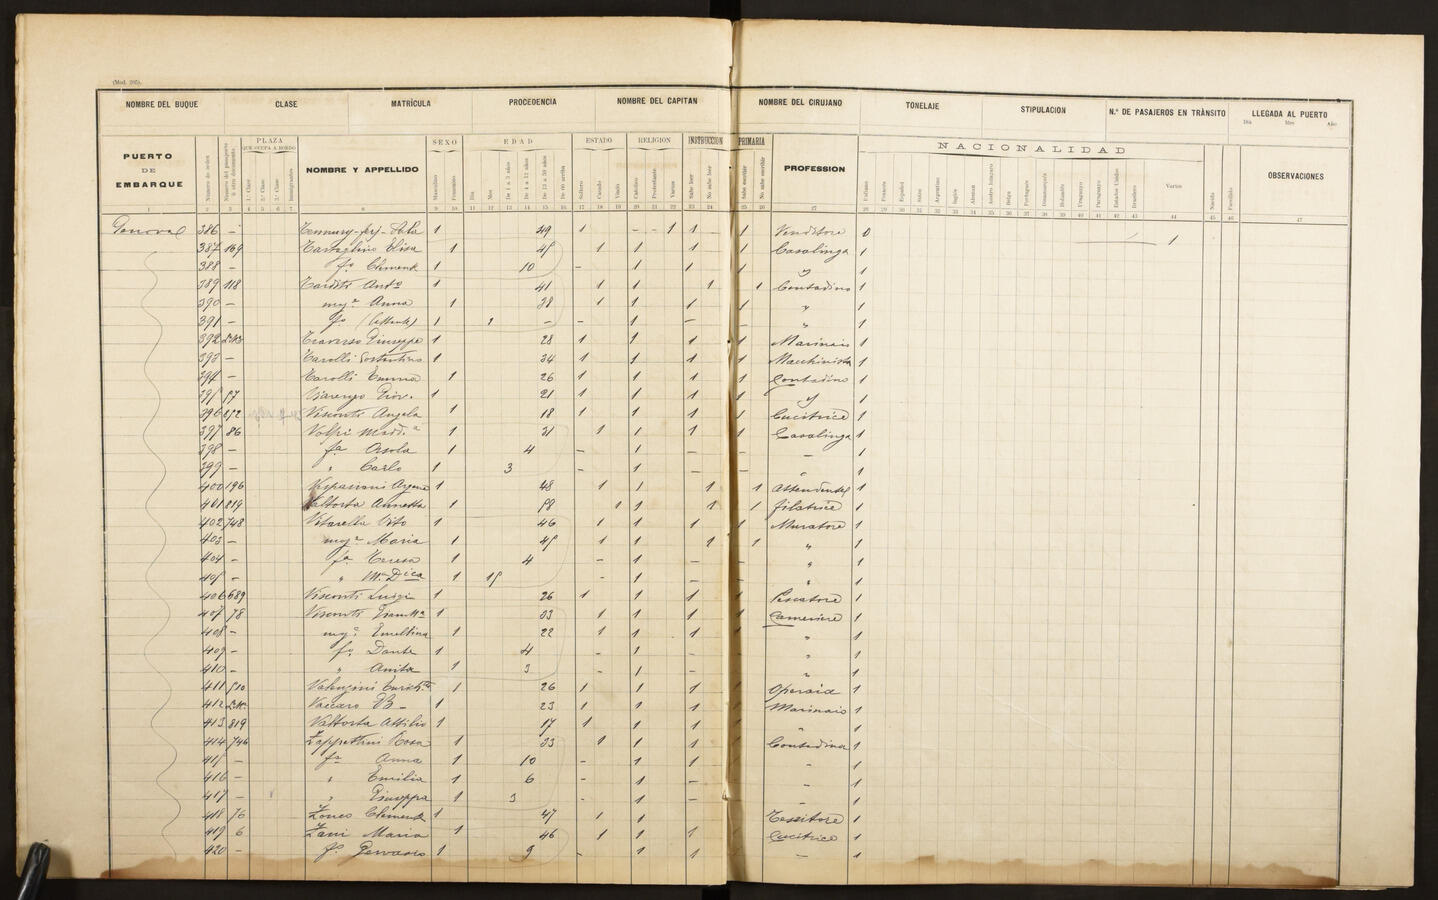 (Mod. 205).
NOMBRE DEL BUQUE CLASE MATRÍCULA PROCEDENCIA NOMBRE DEL CAPITAN NOMBRE DEL CIRUJANO TONELAJE STIPULACION N.º DE PASAJEROS EN TRÀNSITO LLEGADA AL PUERTO
Dia Mes Año
PUERTO DE EMBARQUE Número de orden PLAZA QUE OCUPA A BORDO 1.ª Clase 2.ª Clase 3.ª Clase Inmigrantes NOMBRE Y APPELLIDO SEXO Masculino Femenino EDAD Dia Mes De 1 a 3 años De 4 a 12 años De 13 a 59 años De 60 arriba ESTADO Soltero Casado Viudo RELIGION Catolica Protestante Varias INSTRUCCION PRIMARIA Sabe leer No sabe leer Sabe escribir No sabe escribir PROFESSION NACIONALIDAD Italiano Francés Español Suizo Argentino Inglés Aleman Belga Portugués Holandés Uruguayo Paraguayo Estados Unidos Brasilero Varias Nacido Fallecido OBSERVACIONES
1 2 3 4 5 6 7 8 9 10 11 12 13 14 15 16 17 18 19 20 21 22 23 24 25 26 27 28 29 30 31 32 33 34 35 36 37 38 39 40 41 42 43 44 45 46 47
386 - 1 49 1 - - 1 1 1 Venditore 0 1
387 169 Elisa 1 45 1 1 1 1 Casalinga 1
388 - fo Clemente 1 10 - 1 1 1 " 1
389 118 Tarditi Anto 1 41 1 1 1 1 Contadino 1
390 - mge Anna 1 38 1 1 1 1 " 1
391 - fo 1 1 - - 1 - - " 1
392 Traverso Giuseppe 1 28 1 1 1 1 Marinaio 1
393 - Tarolli 1 34 1 1 1 1 Macchinista 1
394 - Tarolli Emma 1 26 1 1 1 1 Contadino 1
395 57 Giov. 1 21 1 1 1 1 " 1
396 252 Visconti Angela 1 18 1 1 1 1 Cucitrice 1
397 86 Volpi Madda 1 31 1 1 1 1 Casalinga 1
398 - fa Orsola 1 4 - 1 - - - 1
399 - " Carlo 1 3 - 1 - - " 1
400 196 Vespasiani 1 48 1 1 1 1 1
401 819 Valtorta Annetta 1 58 1 1 1 1 filatrice 1
402 748 Vitarella Vito 1 46 1 1 1 1 Muratore 1
403 - mge Maria 1 45 1 1 1 1 " 1
404 - fa Teresa 1 4 - 1 - - " 1
405 - " 1 15 - 1 - - " 1
406 689 Visconti Luigi 1 26 1 1 1 1 Pescatore 1
407 78 Visconti 1 33 1 1 1 1 Cameriere 1
408 - mge 1 22 1 1 1 " 1
409 - fo Dante 1 4 - 1 - " 1
410 - " Anita 1 3 - 1 - " 1
411 510 Valenzini 1 26 1 1 1 1 Operaia 1
412 Vaccaro GB - 1 23 1 1 1 1 Marinaio 1
413 819 Valtorta Attilio 1 17 1 1 1 1 " 1
414 746 Zappettini Rosa 1 33 1 1 1 1 Contadina 1
415 - fa Anna 1 10 - 1 1 1 - 1
416 - " Emilia 1 6 - 1 - - - 1
417 - " Giuseppa 1 3 - 1 - - - 1
418 76 Clemente 1 47 1 1 Tessitore 1
419 6 Zani Maria 1 46 1 1 1 1 Cucitrice 1
420 - fo Gervasio 1 9 - 1 1 - 1